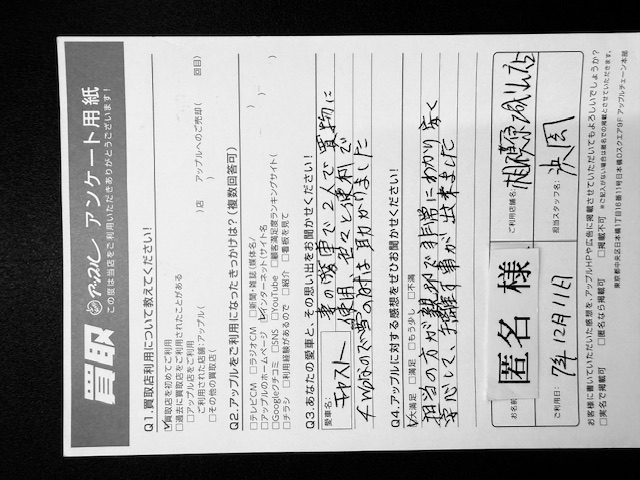 買取 アップル アンケート用紙
この度は当店をご利用いただきありがとうございます!
Q1.買取店利用について教えてください!
☑買取店を初めてご利用
□過去に買取店をご利用されたことがある
□アップル店をご利用
ご利用された店舗:アップル( )店 アップルへのご売却( 回目)
□その他の買取店( )
Q2.アップルをご利用になったきっかけは?(複数回答可)
□テレビCM □ラジオCM □新聞・雑誌(媒体名/ )
□アップルのホームページ ☑インターネット(サイト名 )
□Googleクチコミ □SNS □YouTube □顧客満足度ランキングサイト( )
□チラシ □利用経験があるので □紹介 □看板を見て
Q3.あなたの愛車と、その思い出をお聞かせください!
愛車名: キャスト 妻の愛車で2人で買物に
使用、色々と便利で
4WDなので雪の時は助かりました
Q4.アップルに対する感想をぜひお聞かせください!
☑大満足 □満足 □もう少し □不満
担当の方が親切で非常にわかり安く
安心して、手離す事が出来ました
お名前 匿名 様
ご利用店舗名: 相模原 店
ご利用日: 7年12月11日
担当スタッフ名:
お客様に書いていただいた感想を、アップルHPや広告に掲載させていただいてもよろしいでしょうか?
□実名で掲載可 □匿名なら掲載可 □掲載不可 ※ご記入がない場合は匿名での掲載とさせていただきます。
東京都中央区日本橋1丁目16番11号日本橋Dスクエア9F アップルチェーン本部